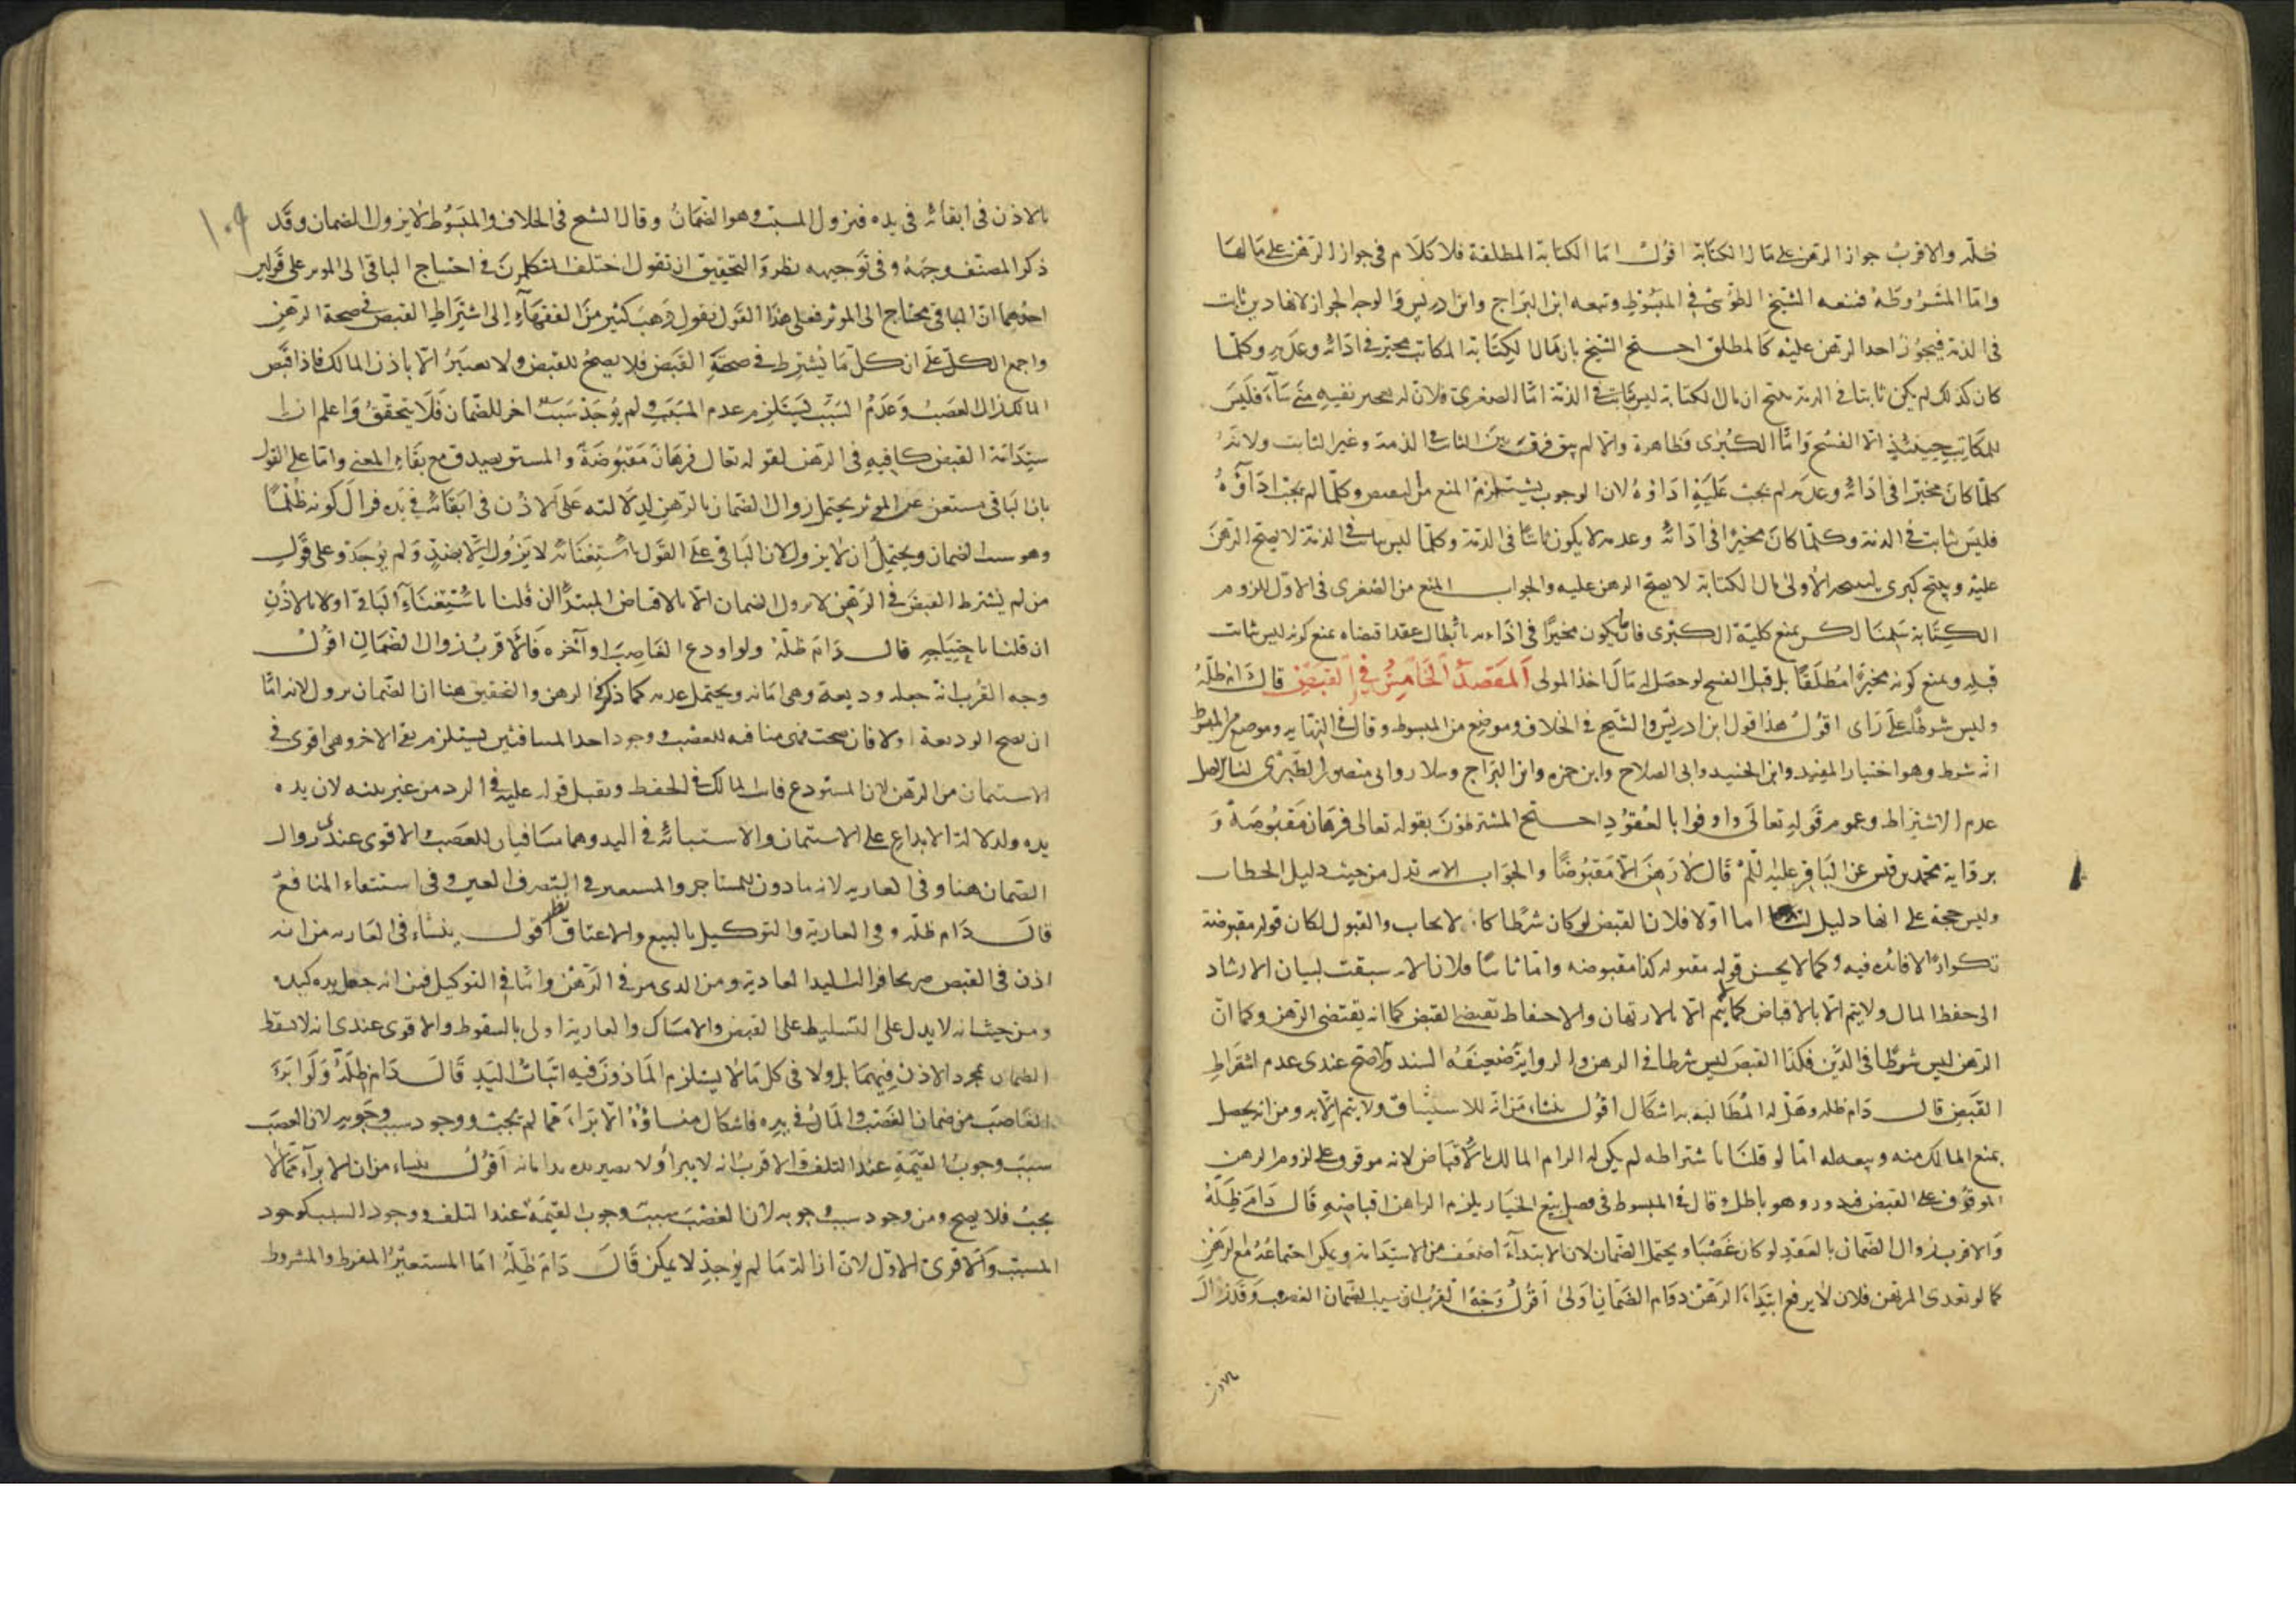 ظلّه والاقرب جواز الرهن على مال الكتابة اقول اما الكتابة المطلقة فلا كلام فى جواز الرهن على مالها
واما المشروطة فمنعه الشيخ الطوسى فى المبسوط وتبعه ابن البراج وابن ادريس والوجه الجواز لانها دين ثابت
فى الذمة فيجوز اخذ الرهن عليه كالمطلق احتج الشيخ بان مال الكتابة المكاتب مخير فى ادائه وعدمه وكلما
كان كذلك لم يكن ثابتا فى الذمة ينتج ان مال الكتابة ليس بثابت فى الذمة اما الصغرى فلان له تعجيز نفسه متى شاء فليس
للمكاتب حينئذ الا الفسخ واما الكبرى فظاهرة والا لم يبق فرق بين الثابت فى الذمة وغير الثابت ولانه
كلما كان مخيرا فى ادائه وعدمه لم يجب عليه اداؤه لان الوجوب يستلزم المنع من النقيض وكلما لم يجب اداؤه
فليس بثابت فى الذمة وكلما كان مخيرا فى ادائه وعدمه لا يكون ثابتا فى الذمة وكلما ليس بثابت فى الذمة لا يصح الرهن
عليه وينتج كبرى لنتيجة الاولى مال الكتابة لا يصح الرهن عليه والجواب المنع من الصغرى فى الاول للزوم
الكتابة سلمنا لكن يمنع كلية الكبرى فانه يكون مخيرا فى اداءه بابطال عقد اقتضاه يمنع كونه ليس بثابت
قبله ويمنع كونه مخيرا مطلقا بل قبل الفسخ لو حصل له مال اخذ المولى المقصد الخامس فى القبض قال دام ظله
وليس شرطا على راى اقول هذا قول ابن ادريس والشيخ فى الخلاف وموضع من المبسوط وقال فى النهاية وموضع من المبسوط
انه شرط وهو اختيار المفيد وابن الجنيد وابى الصلاح وابن حمزه وابن البراج وسلار وابى منصور الطبرسى لنا الاصل
عدم الاشتراط وعموم قوله تعالى واوفوا بالعقود احتج المشترطون بقوله تعالى فرهان مقبوضة و
برواية محمد بن قيس عن الباقر عليه السلم قال لا رهن الا مقبوضا والجواب الاية تدل من حيث دليل الخطاب
وليس حجة على انها دليل لنا اما اولا فلان القبض لو كان شرطا كالايجاب والقبول لكان قوله مقبوضة
تكرارا لا فائده فيه وكما لا يحسن قوله مقبولة كذا مقبوضه واما ثانيا فلان الاية سبقت لبيان الارشاد
الى حفظ المال ولا يتم الا بالاقباض كما لا يتم الا بالارتهان والاحتفاظ تقتضى القبض كما انه يقتضى الرهن وكما ان
الرهن ليس شرطا فى الدين فكذا القبض ليس شرطا فى الرهن والرواية ضعيفة السند والاصح عندى عدم اشتراط
القبض قال دام ظله وهل له المطالبة به اشكال اقول ينشاء من انه للاستيثاق ولا يتم الا به ومن انه يحصل
بمنع المالك منه وبيعه له اما لو قلنا باشتراطه لم يكن له الزام المالك بالاقباض لانه موقوف على لزوم الرهن
الموقوف على القبض فيدور وهو باطل وقال فى المبسوط فى فصل بيع الخيار يلزم الراهن اقباضه قال دام ظله
والاقرب زوال الضمان بالعقد لو كان غصبا ويحتمل الضمان لان الابتداء اضعف من الاستدامة ويمكن اجتماعه مع الرهن
كما لو تعدى المرتهن فلان لا يرفع ابتداء الرهن دوام الضمان اولى اقول وجه القرب ان سبب الضمان الغصب وقد زال
بالاذن فى ابقائه فى يده فيزول المسبب وهو الضمان وقال الشيخ فى الخلاف والمبسوط لا يزول الضمان وقد
ذكر المصنف وجهه وفى توجيهه نظر والتحقيق ان نقول اختلف المتكلمون فى احتياج الباقى الى الموثر على قولين
احدهما ان الباقى يحتاج الى الموثر فعلى هذا القول نقول ذهب كثير من الفقهاء الى اشتراط القبض فى صحة الرهن
واجمع الكل على ان كل ما يشترط فى صحة القبض فلا يصح للقبض ولا يعتبر الا باذن المالك فاذا اقبض
المالك زال الغصب وعدم السبب يستلزم عدم المسبب ولم يوجد سبب اخر للضمان فلا يتحقق واعلم ان
ستدامة القبض كافيه فى الرهن لقوله تعالى فرهان مقبوضة والمشتق يصدق مع بقاء المعنى واما على القول
بان الباقى مستغن عن الموثر يحتمل زوال الضمان بالرهن لدلالته على الاذن فى ابقائه فى يده فزال كونه ظلما
وهو سبب الضمان ويحتمل ان لا يزول لان الباقى على القول باستغنائه لا يزول الا بضد ولم يوجد وعلى قول
من لم يشترط القبض فى الرهن لا يزول الضمان الا بالاقباض المبتدا ان قلنا باستغناء الباقى اولا بالاذن
ان قلنا باحتياجه قال دام ظله ولو اودع الغاصب او آجره فالاقرب زوال الضمان اقول
وجه القرب انه جعله وديعة وهى امانه ويحتمل عدمه كما ذكر فى الرهن والتحقيق هنا ان الضمان يزول لانه اما
ان يصح الوديعة اولا فان صحت فهى منافيه للغصب ووجود احد المتنافيين يستلزم نفى الاخر وهى اقوى فى
الاستيمان من الرهن لان المستودع نائب المالك فى الحفظ ويقبل قوله عليه فى الرد من غير بينه لان يده
يده ولدلالة الايداع على الاستيمان والاستنابة فى اليد وهما منافيان للغصب والاقوى عندى زوال
الضمان هنا وفى العارية لانه ماذون للمستاجر والمستعير فى التصرف العين وفى استيفاء المنافع
قال دام ظله وفى العارية والتوكيل بالبيع والاعتاق نظر اقول ينشاء فى العارية من انه
اذن فى القبض صريحا فزال اليد العادية ومن الذى مر فى الرهن واما فى التوكيل فمن انه جعل يده كيده
ومن حيث انه لا يدل على التسليط على القبض والامساك والعارية اولى بالسقوط والاقوى عندى انه لا يسقط
الضمان بمجرد الاذن فيهما بل ولا فى كل ما لا يستلزم الماذون فيه اثبات اليد قال دام ظله ولو ابرء
الغاصب من ضمان الغصب والمال فى يده فاشكال منشاؤه الابراء مما لم يجب ووجود سبب وجوبه لان الغصب
سبب وجوب القيمة عند التلف والاقرب انه لا يبرأ ولا يصير يده يد امانه اقول ينشاء من ان الابراء مما لا
يجب فلا يصح ومن وجود سبب وجوبه لان الغصب سبب وجوب القيمة عند التلف ووجود السبب كوجود
المسبب والاقوى الاول لان ازالة ما لم يوجد لا يمكن قال دام ظله اما المستعير المفرط والمشروط